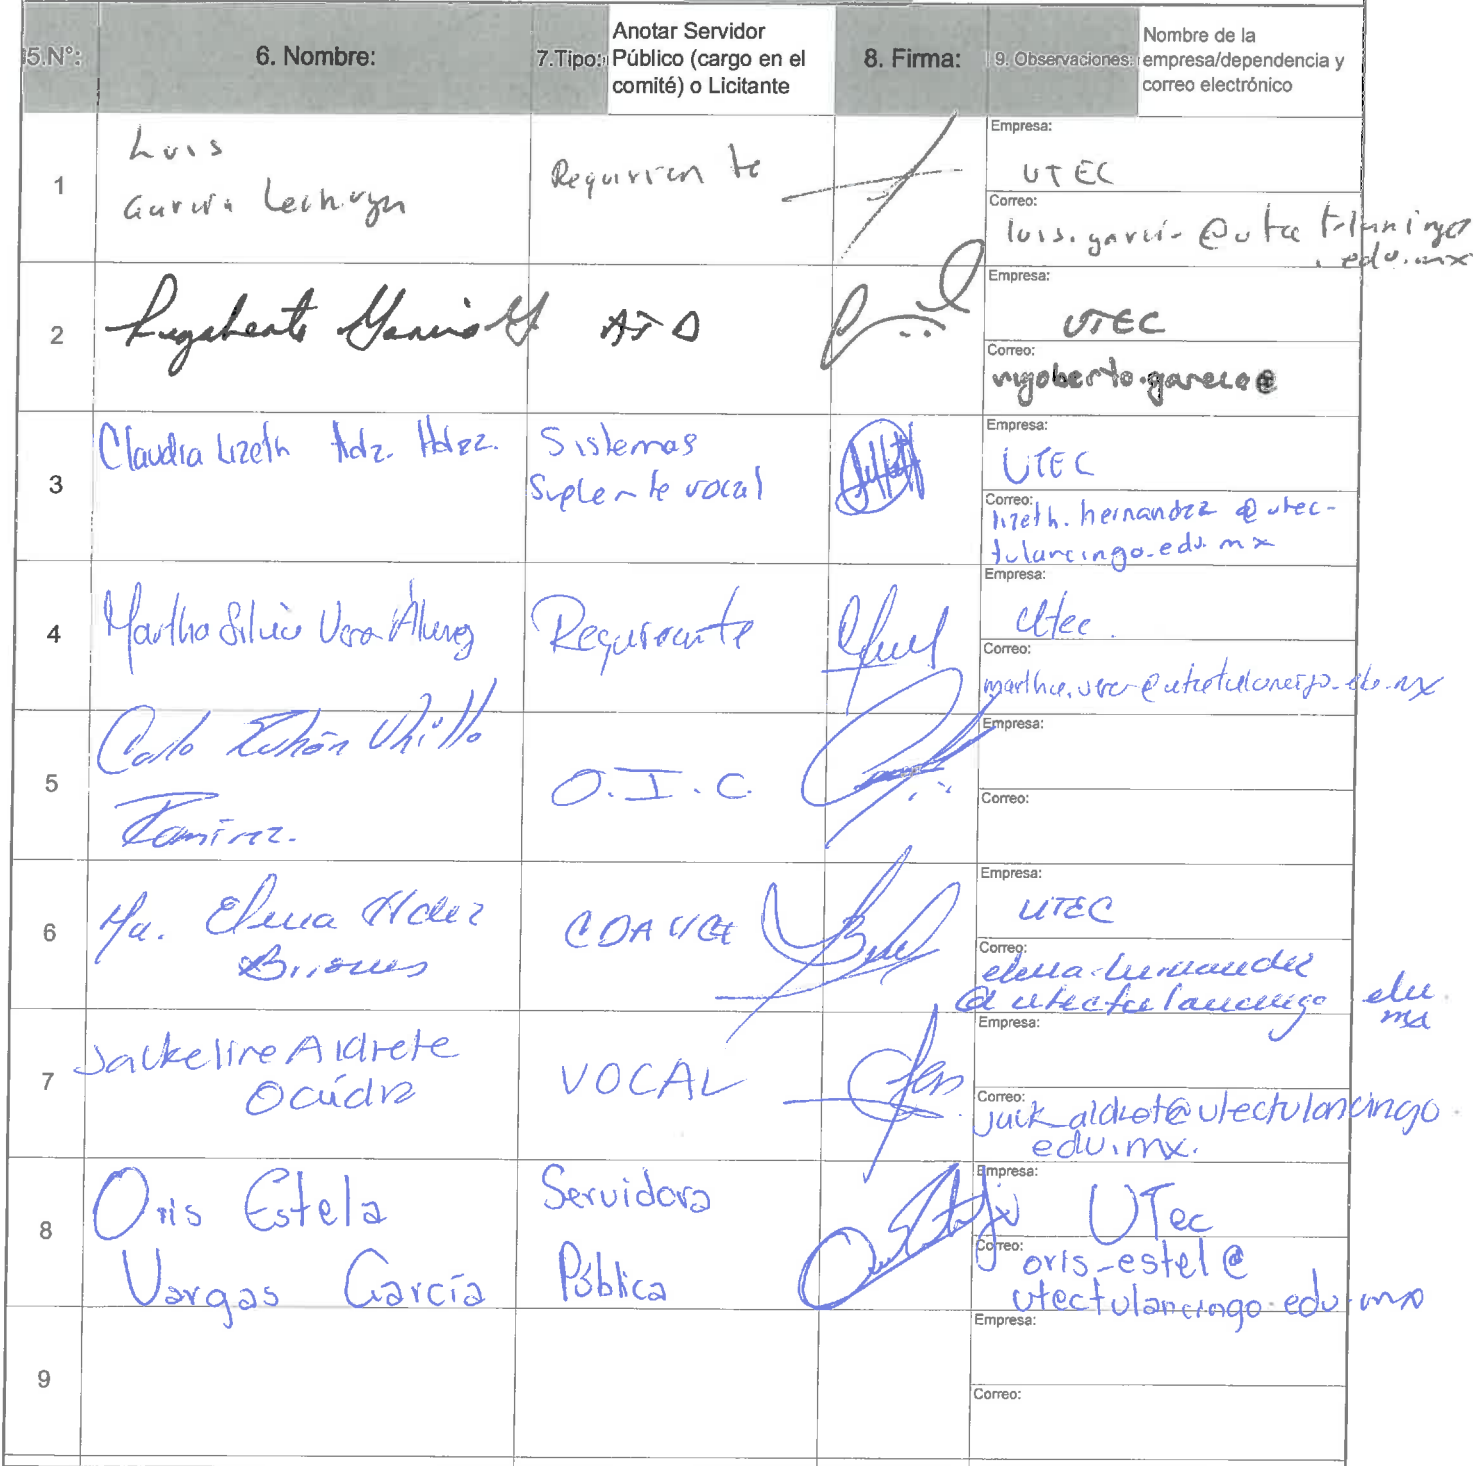 5.N°: 6. Nombre: 7.Tipo: Anotar Servidor Público (cargo en el comité) o Licitante 8. Firma: 9. Observaciones: Nombre de la empresa/dependencia y correo electrónico
1
Luis
García Lechuga
Requirien te
Empresa:
UTEC
Correo:
luis.garcia @utectulancingo
.edu.mx
2
Rigoberto García
Empresa:
UTEC
Correo:
rigoberto.garcia@
3
Claudia Lizeth Hdz. Hdez.
Sistemas
Suplente vocal
Empresa:
UTEC
Correo:
lizeth.hernandez @utec-
tulancingo.edu.mx
4
Martha Silvia Vera Álvarez
Requirente
Empresa:
Utec.
Correo:
martha.vera@utectulancingo.edu.mx
5
Ramírez.
O.I.C.
Empresa:
Correo:
6
Ma. Elena Hdez
Briones
Empresa:
UTEC
Correo:
elena.hernandez
@utectulancingo edu.
mx
7
Jackeline Aldrete
Ocádiz
VOCAL
Empresa:
Correo:
jack_aldret@utectulancingo.
edu.mx.
8
Oris Estela
Vargas García
Servidora
Pública
Empresa:
UTec
Correo:
oris_estel@
utectulancingo.edu.mx
9
Empresa:
Correo: